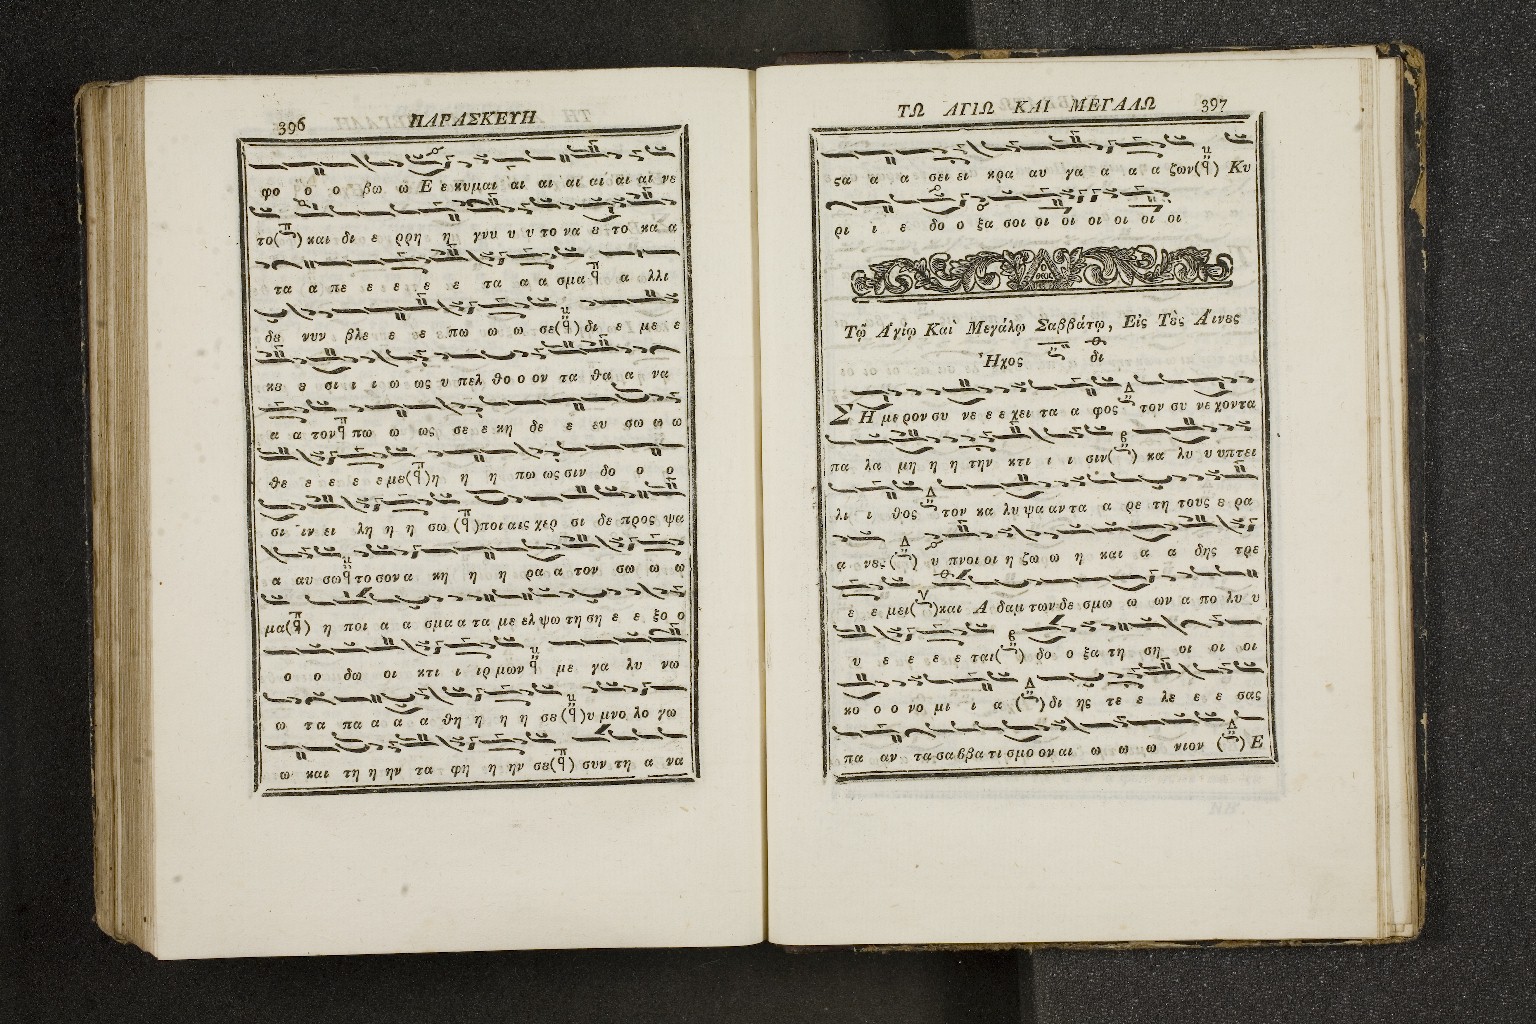 396 ΠΑΡΑΣΚΕΥΗ
φο ο ο βω ω Ε ε κυμαι αι αι αι αι αι αι νε
το( ) και δι ε ρρη η γνυ υ υ το να ȣ το κα α
τα α πε ε ε ε ε τα α α σμα α λλι
δε νυν βλε ε ε ε πω ω ω σε( ) δι ε με ε
κε ε σι ι ι ω ως υ πελ θο ο ον τα θα α να
α α τον πω ω ως σε ε κη δε ε ευ σω ω ω
θε ε ε ε ε με( )η η η πω ως σιν δο ο ο
σι ιν ει λη η η σω ( )ποι αις χερ σι δε προς ψα
α αυ σω το σον α κη η η ρα α τον σω ω ω
μα( ) η ποι α α σμα α τα με ελ ψω τη ση ε ε ξο ο
ο ο δω οι κτι ι ιρ μων με γα λυ νω
ω τα πα α α α θη η η η σε( )υ μνο λο γω
ω και τη η ην τα φη η ην σε( ) συν τη α να
ΤΩ ΑΓΙΩ ΚΑΙ ΜΕΓΑΛΩ 397
ςα α α σει ει κρα αυ γα α α α ζων( ) Κυ
ρι ι ε δο ο ξα σοι οι οι οι οι οι οι οι
Ο
ΘΕΟΣ
Τῷ Ἁγίῳ Καὶ Μεγάλῳ Σαββάτῳ, Εἰς Τȣ̀ς Αἴνȣς
Ἦχος δι
ΣΗ με ρον συ νε ε ε χει τα α φος τον συ νε χοντα
πα λα μη η η την κτι ι ι σιν( ) κα λυ υ υπτει
λι ι θος τον κα λυ ψα αν τα α ρε τη τους ȣ ρα
α νȣς( ) υ πνοι οι η ζω ω η και α α δης τρε
ε ε μει( )και Α δαμ των δε σμω ω ων α πο λυ υ
υ ε ε ε ε ται( ) δο ο ξα τη ση οι οι οι
κο ο ο νο μι ι α ( )δι ης τε ε λε ε ε σας
πα αν τα σα ββα τι σμο ον αι ω ω ω νιον ( ) Ε